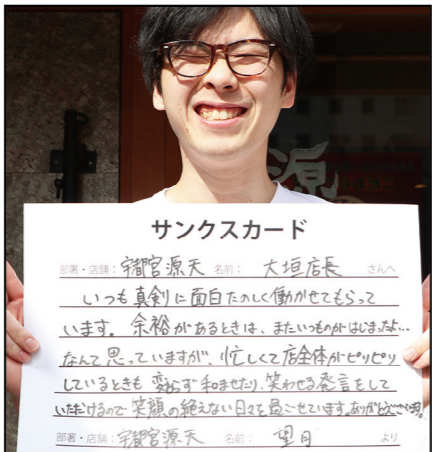 源
サンクスカード
部署・店舗：宇都宮源天 名前： 大垣店長 さんへ
いつも真剣に面白たのしく働かせてもらって
います。余裕があるときは、またいつものがはじまったよ…
なんて思っていますが、忙しくて店全体がピリピリ
しているときも変わらず和ませたり、笑わせる発言をして
いただけるので笑顔の絶えない日々を過ごせています。ありがとうございます。
部署・店舗：宇都宮源天 名前： 望月 より